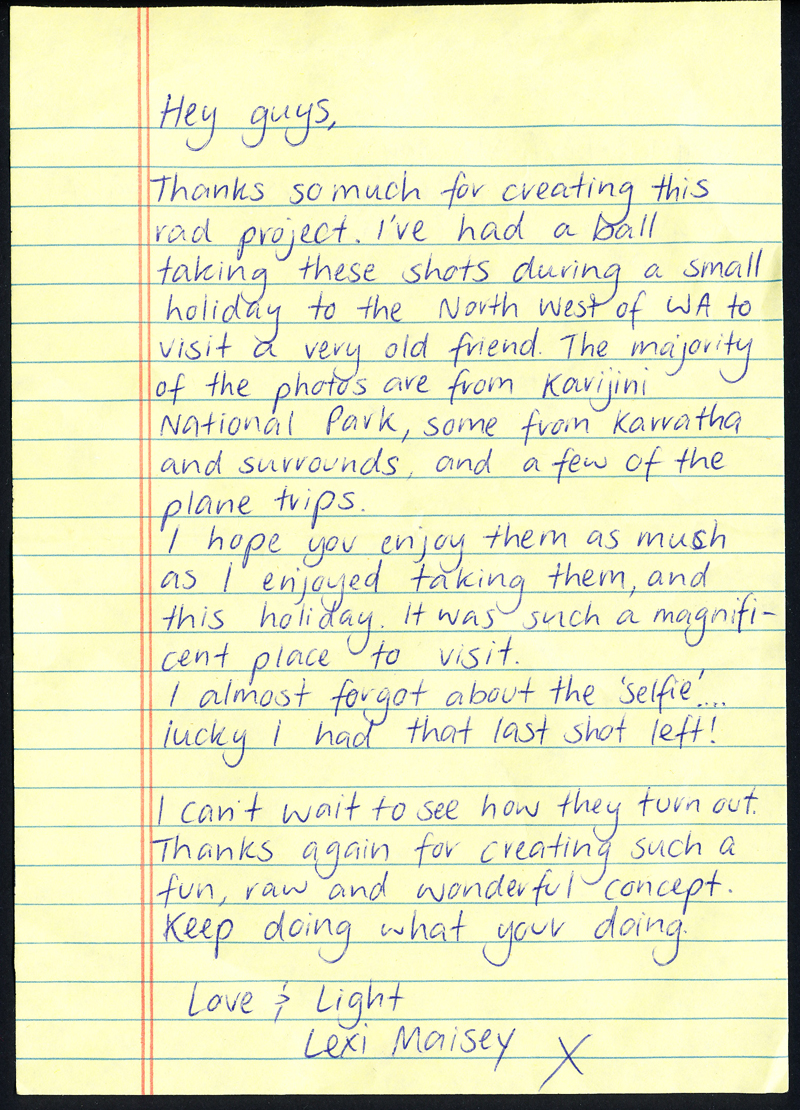 Hey guys,
Thanks so much for creating this
rad project. I've had a ball
taking these shots during a small
holiday to the North West of WA to
visit a very old friend. The majority
of the photos are from Karijini
National Park, some from Karratha
and surrounds, and a few of the
plane trips.
I hope you enjoy them as much
as I enjoyed taking them, and
this holiday. It was such a magnifi-
cent place to visit.
I almost forgot about the 'selfie'....
lucky I had that last shot left!
I can't wait to see how they turn out.
Thanks again for creating such a
fun, raw and wonderful concept.
Keep doing what your doing.
Love & Light
Lexi Maisey X